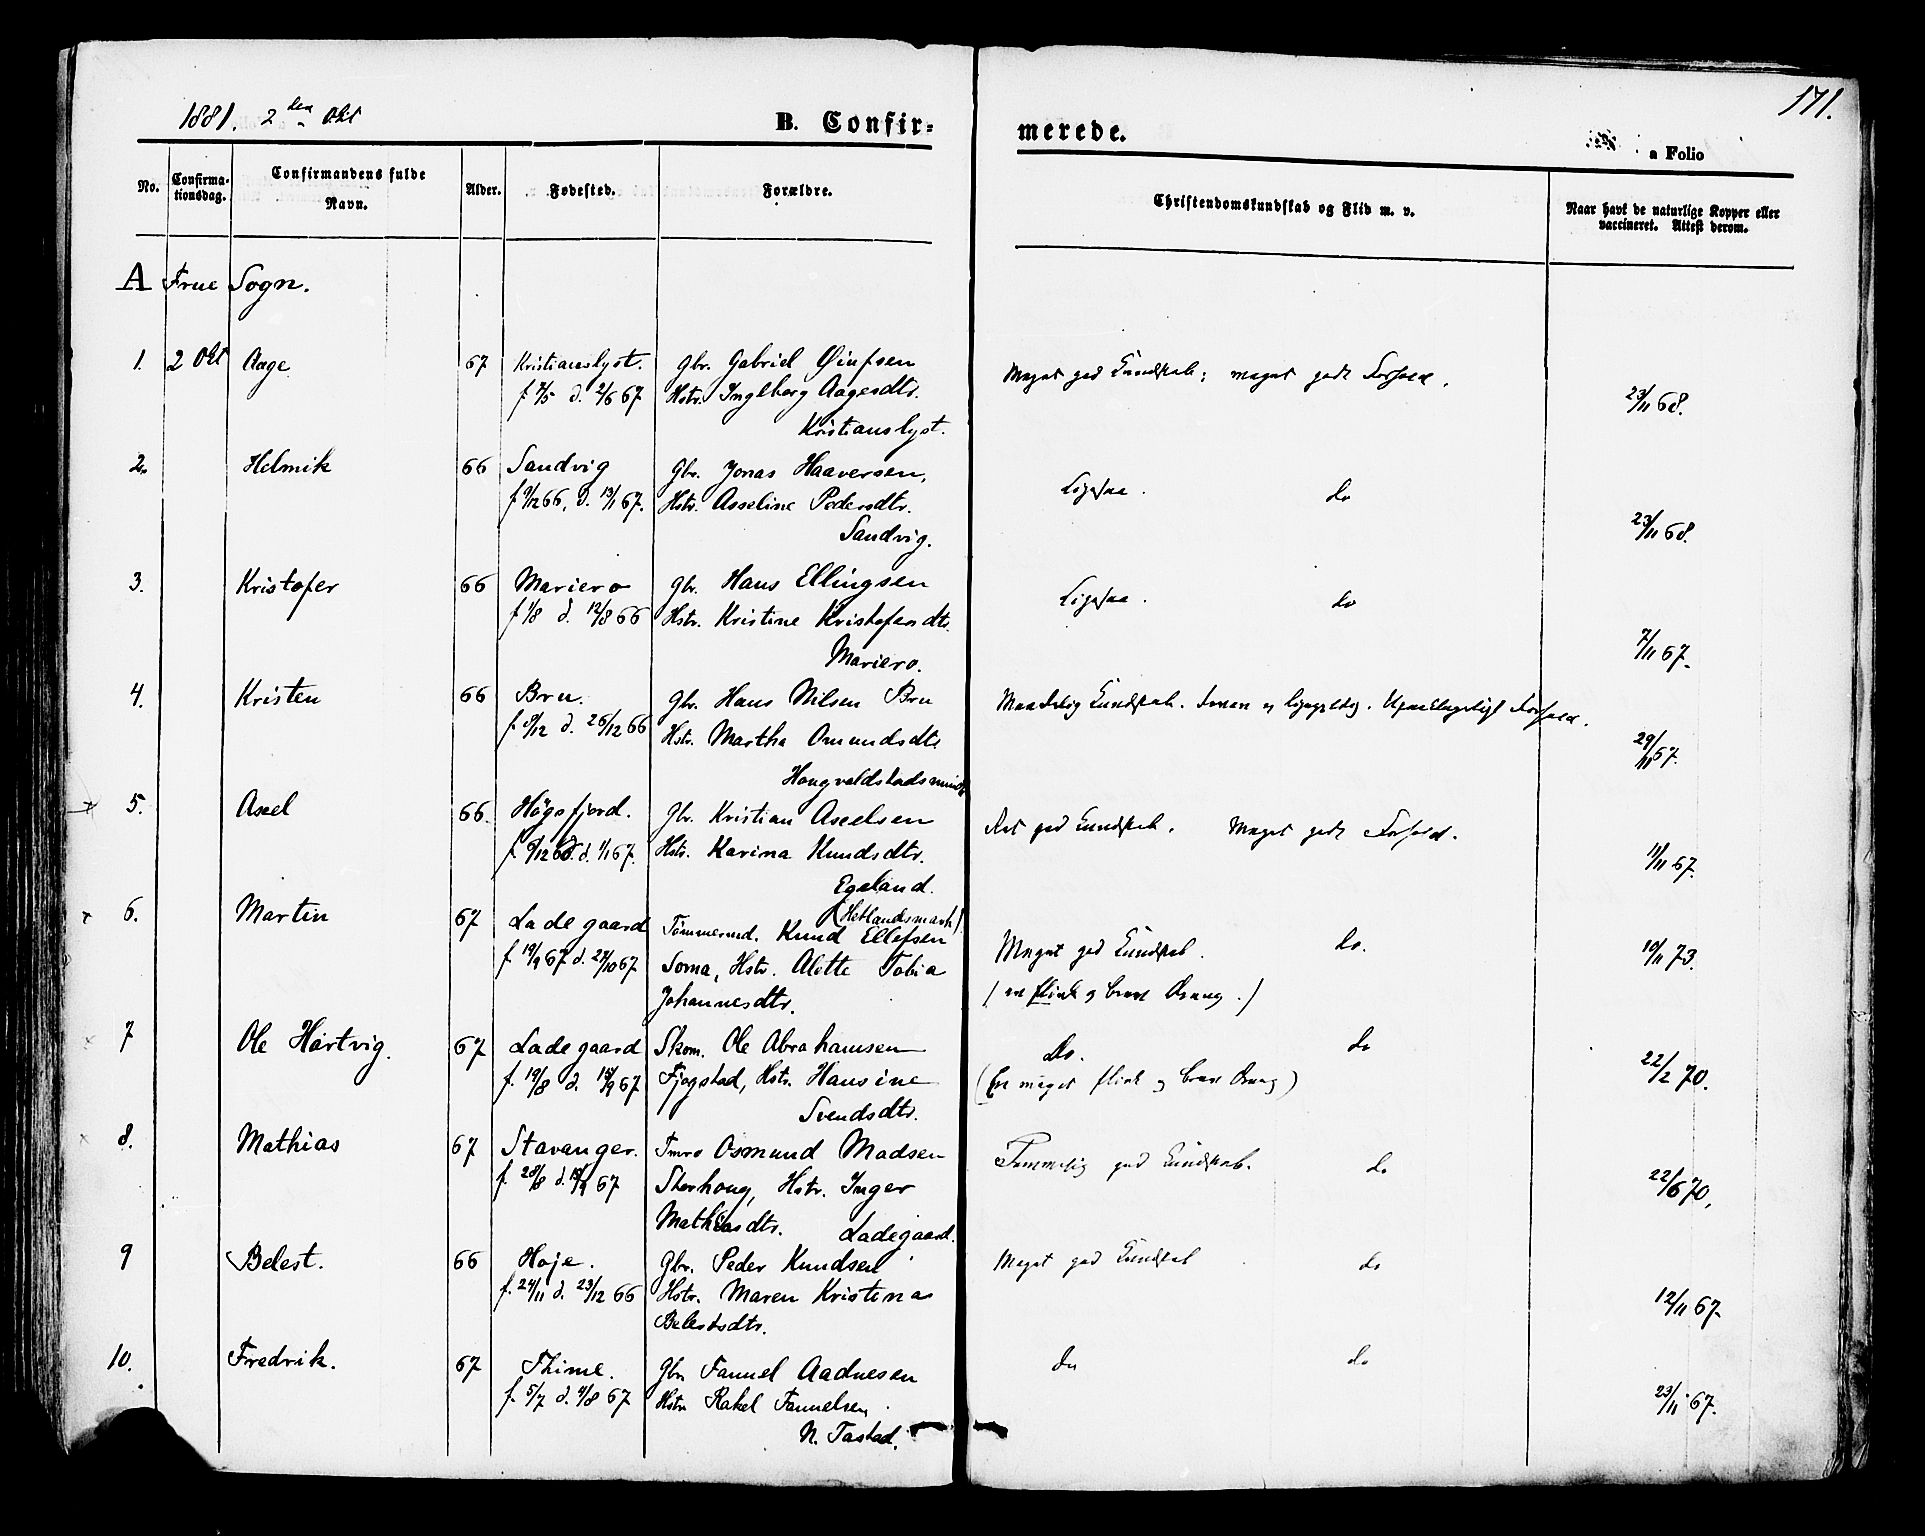 1881. 2den Okt
B. Confir-
merede.
171.
a Folio
No.
Confirma-
tionsdag.
Confirmandens fulde
Navn.
Alder.
Fødested.
Forældre.
Christendomskundskab og Flid m. v.
Naar havt de naturlige Kopper eller
vaccineret. Attest derom.
A Frue Sogn.
1. 2 Okt Aage 67 Kristianslyst. Gbr. Gabriel
f 7/5 d. 2/6 67 Hstr. Ingeborg Aagesdtr.
Kristianslyst.
Meget god Kundskab; meget godt Forhold.
23/11 68.
2. Helmik 66 Sandvig Gbr. Jonas Haaversen,
f 9/12 66, d. 13/1 67. Hstr. Asseline Pedersdtr.
Sandvig.
Ligesaa. do
23/11 68.
3. Kristofer 66 Mariero Gbr. Hans Ellingsen
f 1/8 d. 12/8 66 Hstr. Kristine Kristofersdtr.
Mariero.
Ligesaa. do
7/11 67.
4. Kristen 66 Bru. Gbr. Hans Nilsen Bru
f 9/12 d. 26/12 66 Hstr. Martha Omundsdtr
Maadelig Kundskab. Doven og ligegyldig. Upaaklageligt Forhold.
29/11 67.
5. Axel 66. Høgsfjord. Gbr. Kristian Axelsen
d. 1/1 67. Hstr. Karina Knudsdtr.
Egeland.
(Hetlandsmark)
Ret god Kundskab. Meget godt Forhold.
11/11 67.
6. Martin 67 Ladegaard Tømmermd. Knud Ellefsen
f. 19/9 67 d. 27/10 67 Soma, Hstr. Alette Tobia
Johannesdtr.
Meget god Kundskab. do.
(en flink og brav Dreng.)
10/11 73.
7 Ole Hartvig. 67 Ladegaard Skom. Ole Abrahamsen
f. 19/8 d. 15/9 67 Fjogstad, Hstr. Hansine
Svendsdtr.
Do. do
(En meget flink og brav Dreng)
22/2 70.
8. Mathias 67 Stavanger. Tmrd Osmund Madsen
f. 28/8 d. 15/9 67 Storhoug, Hstr. Inger
Mathiasdtr. Ladegaard.
Temmelig god Kundskab. do
22/6 70,
9 Belest. 66 Høje. Gbr. Peder Knudsen
f. 24/11 d. 23/12 66 Hstr. Maren Kristina
Belestsdtr.
Meget god Kundskab do
12/11 67.
10. Fredrik. 67 Thime. Gbr. Fanuel Aadnesen
f. 5/7 d. 4/8 67 Hstr Rakel Fanuelsen
N. Tastad.
do do
23/11 67.